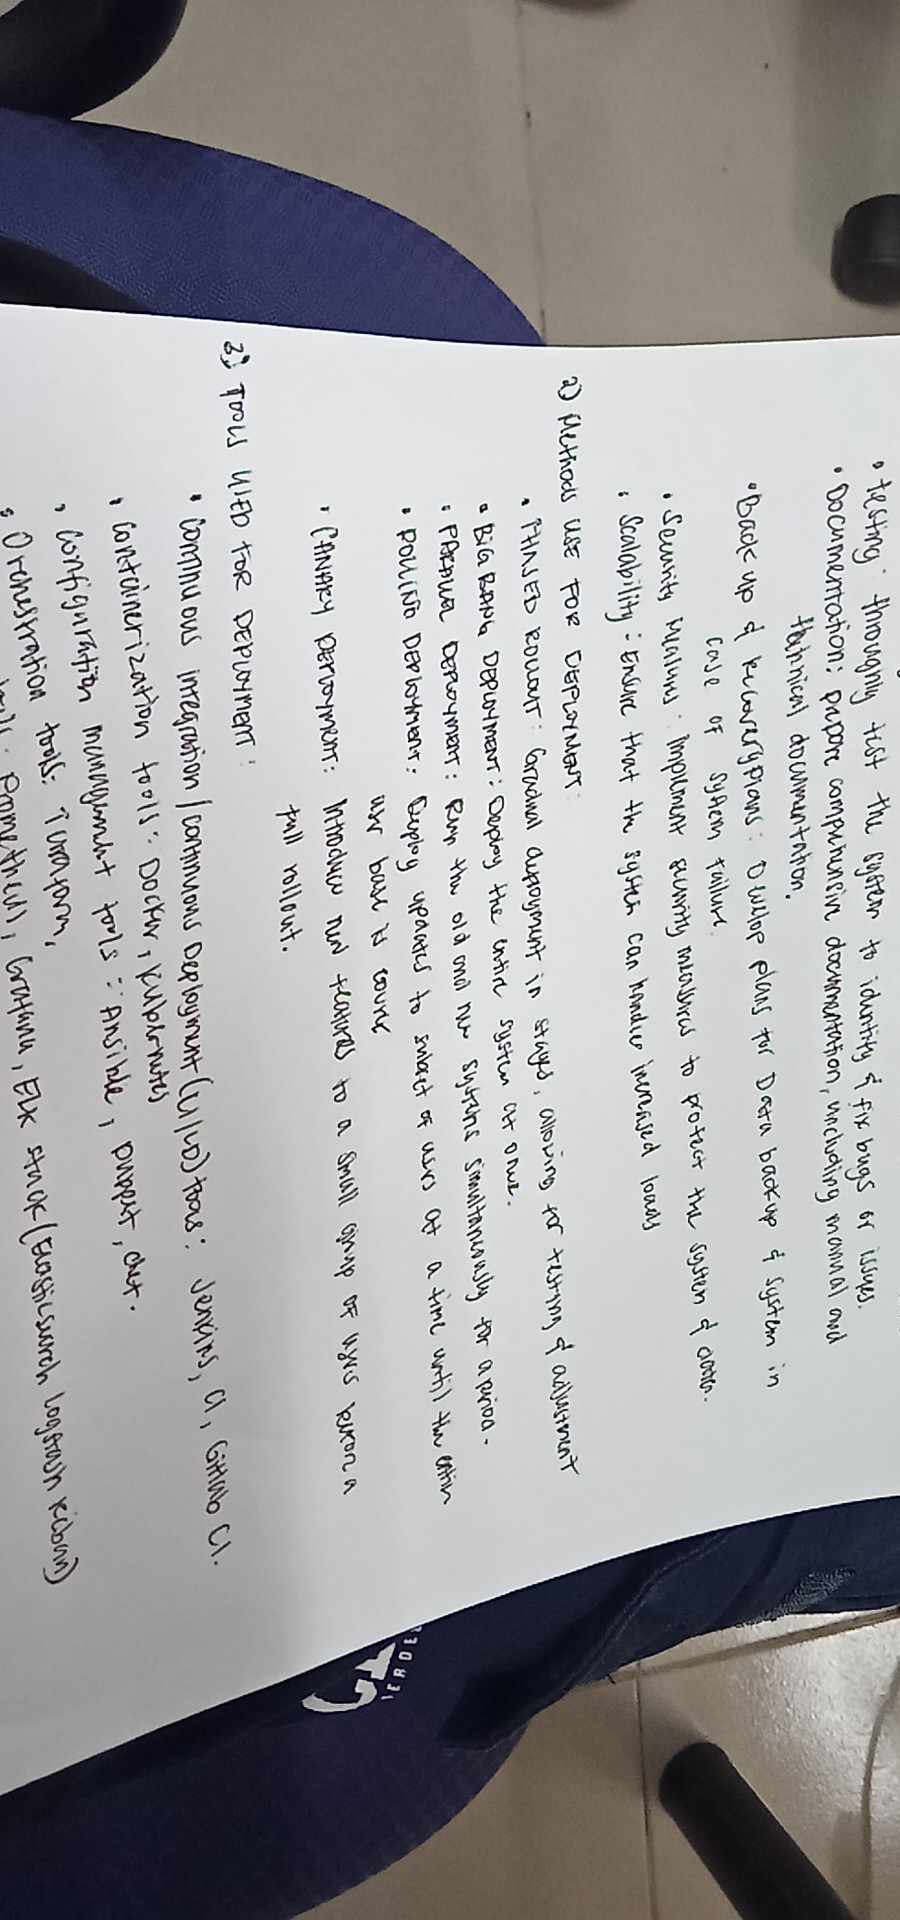 • Testing: throughly test the system to identity & fix bugs or issues.
• Documentation: prepare comprehensive documentation, including manual and
technical documentation.
• Back up & recovery plans: Develop plans for Data backup & system in
case of system failure.
• Security Measures: implement security measures to protect the system &
• Scalability: Ensure that the system can handle increased loads
2) Methods USE FOR DEPLOYMENT:
• PHASED ROLLOUT: Gradual deployment in stages, allowing for testing & adjustment
• BIG BANG DEPLOYMENT: Deploy the entire system at once.
• PARALLEL DEPLOYMENT: Run the old and new systems simultaneously for a period.
• ROLLING DEPLOYMENT: Deploy updates to subset of users at a time until the entire
user base is
• CANARY DEPLOYMENT: Introduce new features to a small group of users before a
full rollout.
3) TOOLS USED FOR DEPLOYMENT:
• Continuous integration / continuous Deployment (CI/CD) tools: Jenkins, CI, GitLab CI.
• Containerization tools: Docker, Kubernutes
• Configuration management tools: Ansible, puppet, chef.
• Orchestration tools: Terraform,
Prometheus, Grafana, ELK stack (Elasticsearch Logstash Kibana)
G
HEROES